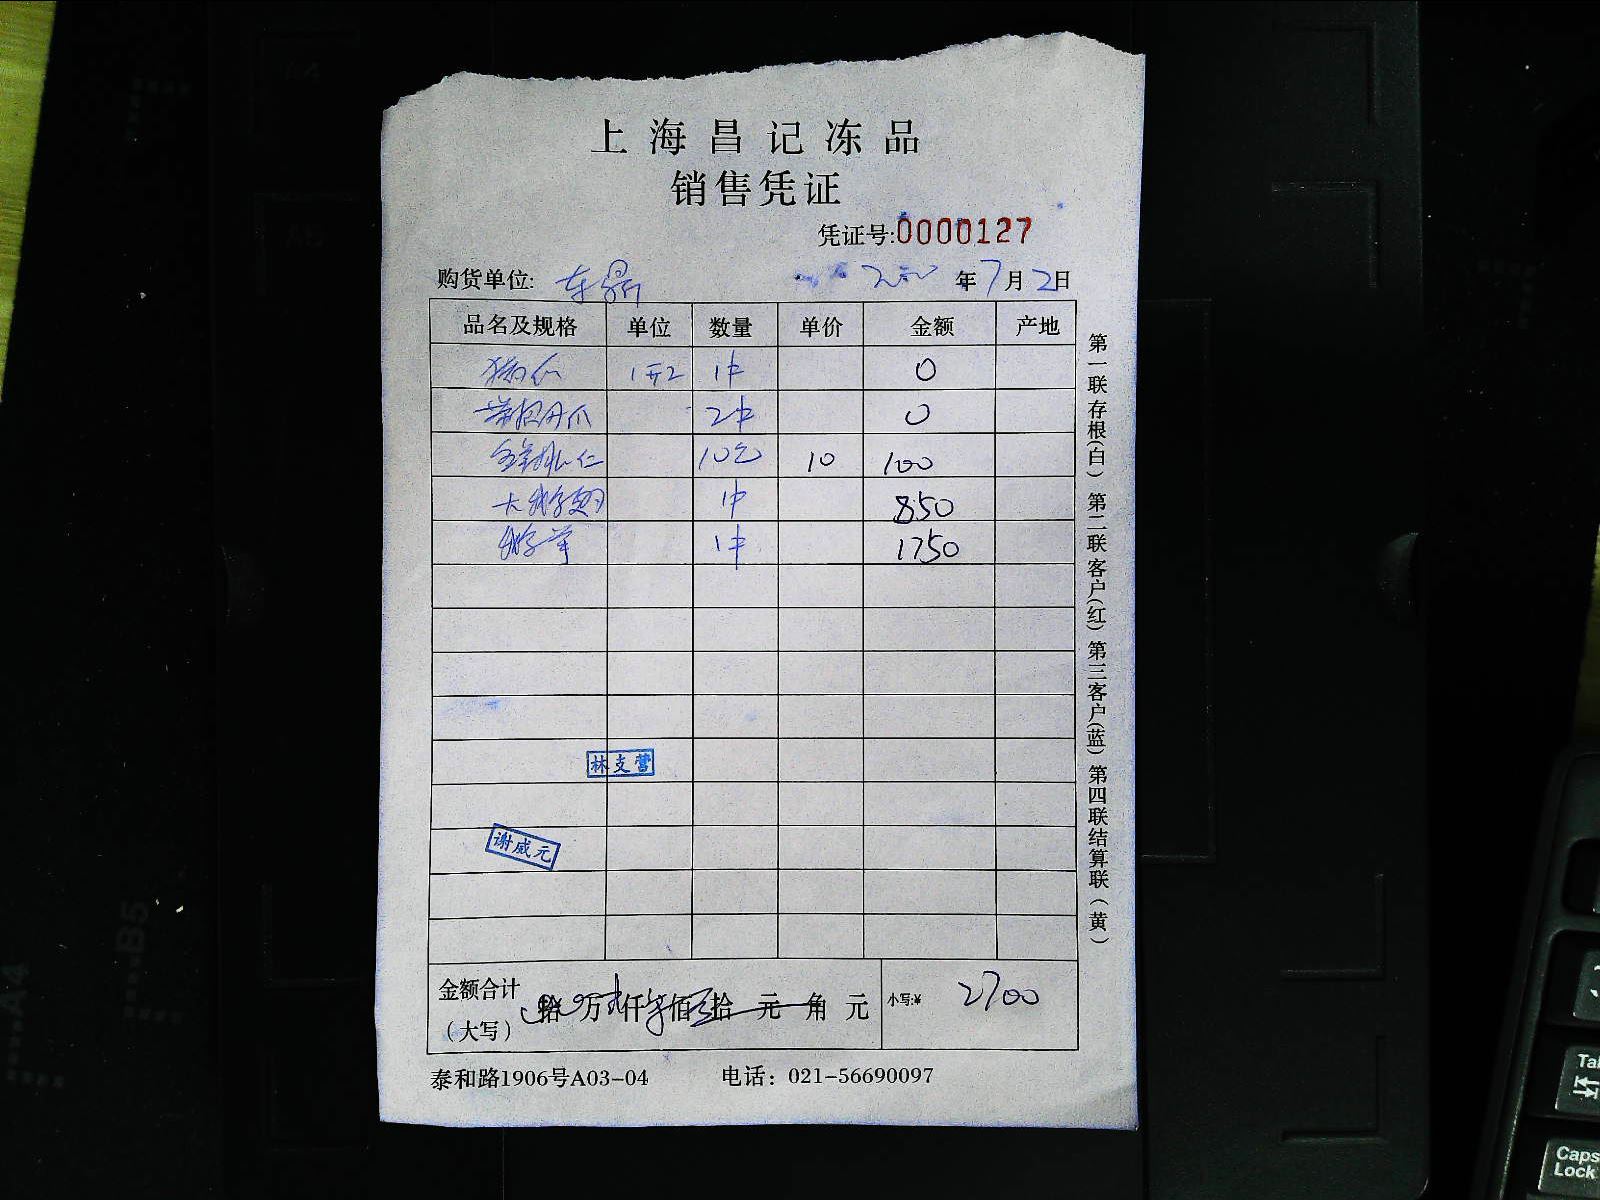 上海昌记冻品
销售凭证
凭证号:0000127
购货单位: 东鼎 年7月2日
品名及规格 单位 数量 单价 金额 产地
1开2 1中 0
2中 0
10包 10 100
1中 850
1中 1750
林支营
谢威元
金额合计
(大写)
拾 万 仟 佰 拾 元 角 元
小写:¥ 2700
泰和路1906号A03-04 电话: 021-56690097
第一联存根(白) 第二联客户(红) 第三客户(蓝) 第四联结算联(黄)
A4
B5
Caps
Lock